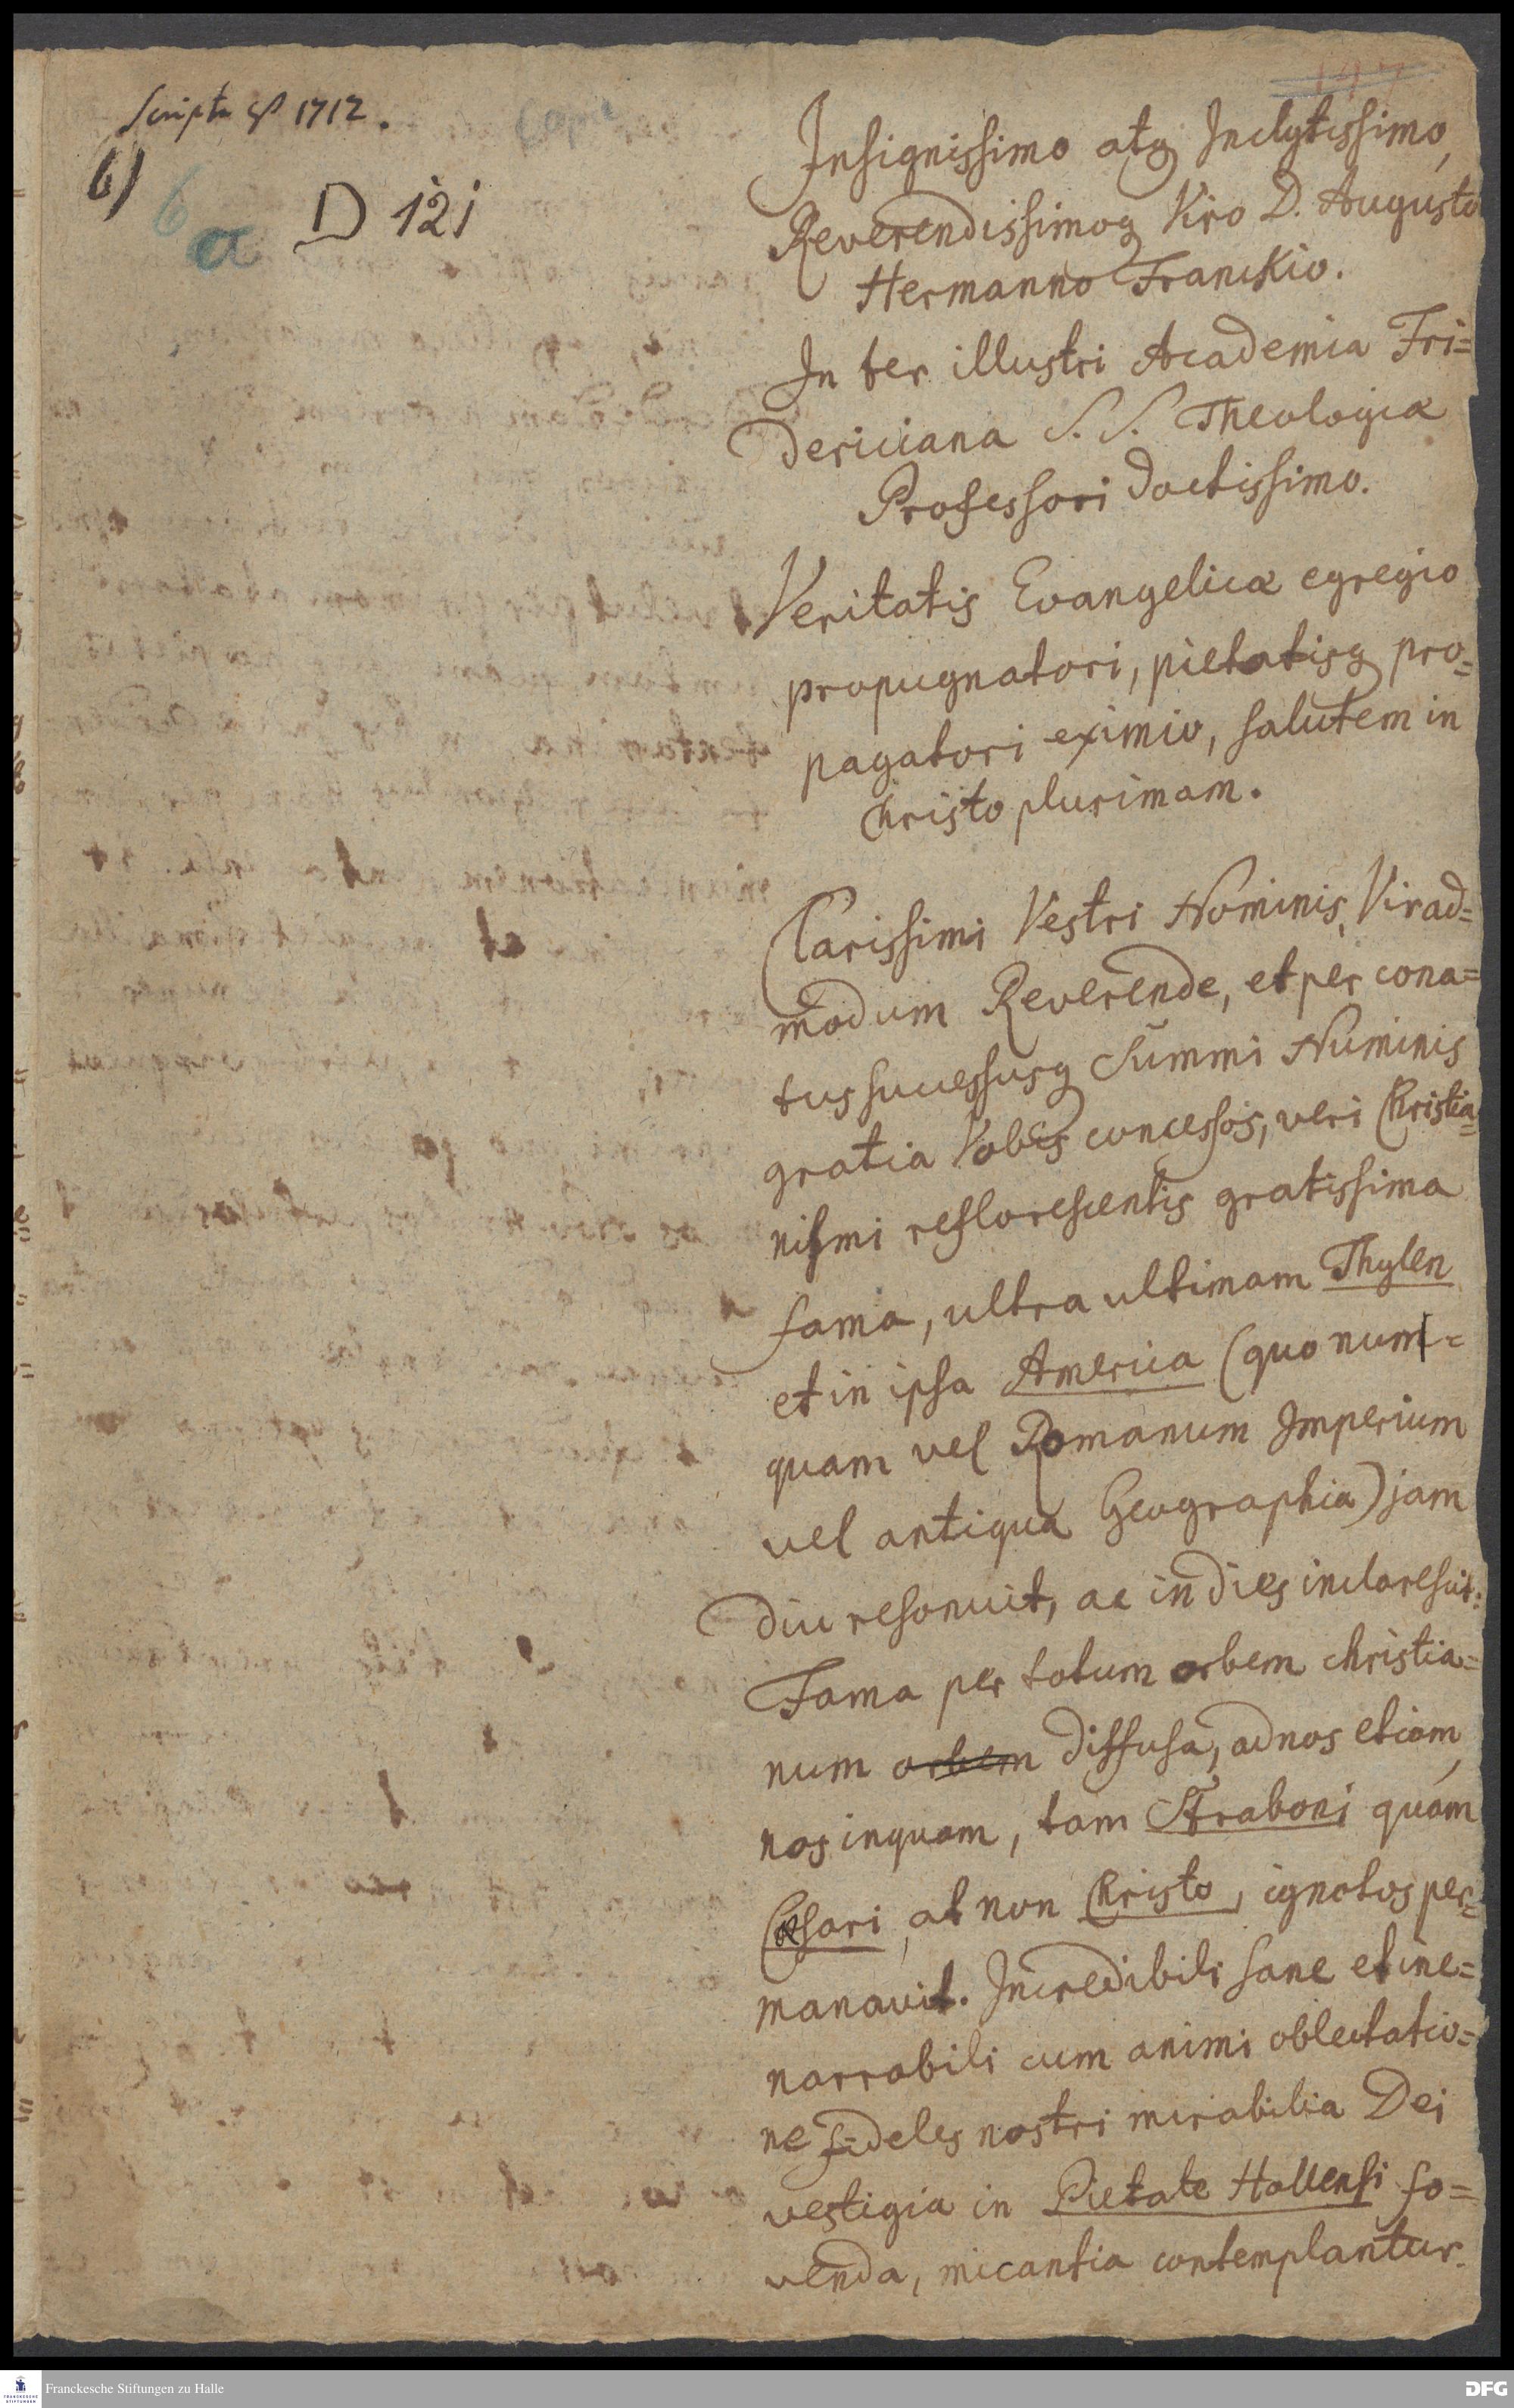 Scripta est 1712.
6)
6
a
D 121
Insignissimo atq Inclytissimo,
Reverendissimoq Viro D. Augusto
Hermanno Franckio.
In ter illustri Academia Fri=
dericiana S. S. Theologiæ
Professori doctissimo.
Veritatis Evangelicæ egregio
propugnatori, pietatisq pro=
pagatori eximio, salutem in
Christo plurimam.
Clarissimi Vestri Nominis, Vir ad=
modum Reverende, et per cona=
tus successusq Summi Numinis
gratia Vobis concessos, veri Christia=
nismi reflorescentis gratissima
fama, ultra ultimam Thylen
et in ipsa America (quo num=
quam vel Romanum Imperium
vel antiqua Geographia) jam
diu resonuit, ac in dies inclarescit:
Fama per totum orbem christia=
num orbem diffusa, ad nos etiam,
nos inquam, tam Straboni quam
Cæsari, at non Christo, ignotos per=
manavit. Incredibili sane et ine=
narrabili cum animi oblectatio=
ne fideles nostri mirabilia Dei
vestigia in Pietate Hallensi fo=
venda, micantia contemplantur.
Franckesche Stiftungen zu Halle
DFG